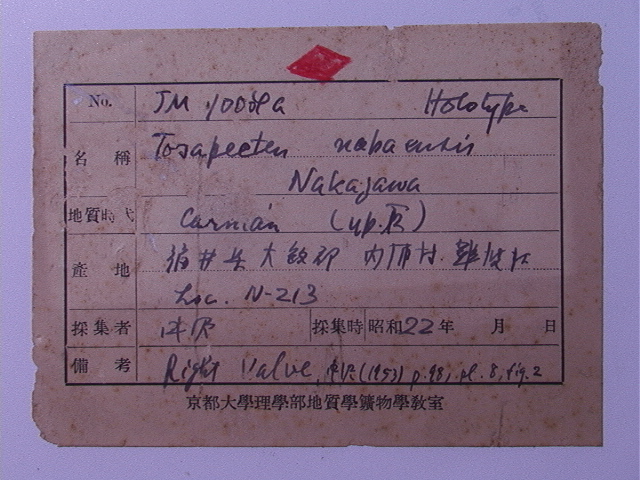 No. JM Holotype
名稱 Tosapecten nabaensis
Nakazawa
地質時代 Carnian (up. 下)
産地 福井縣大飯郡 内浦村 難波江
Loc. N-213
採集者 中沢 採集時 昭和22年 月 日
備考 Right Valve, 中沢 (1953) p. 98, pl. 8, fig. 2
京都大學理學部地質學鑛物學教室